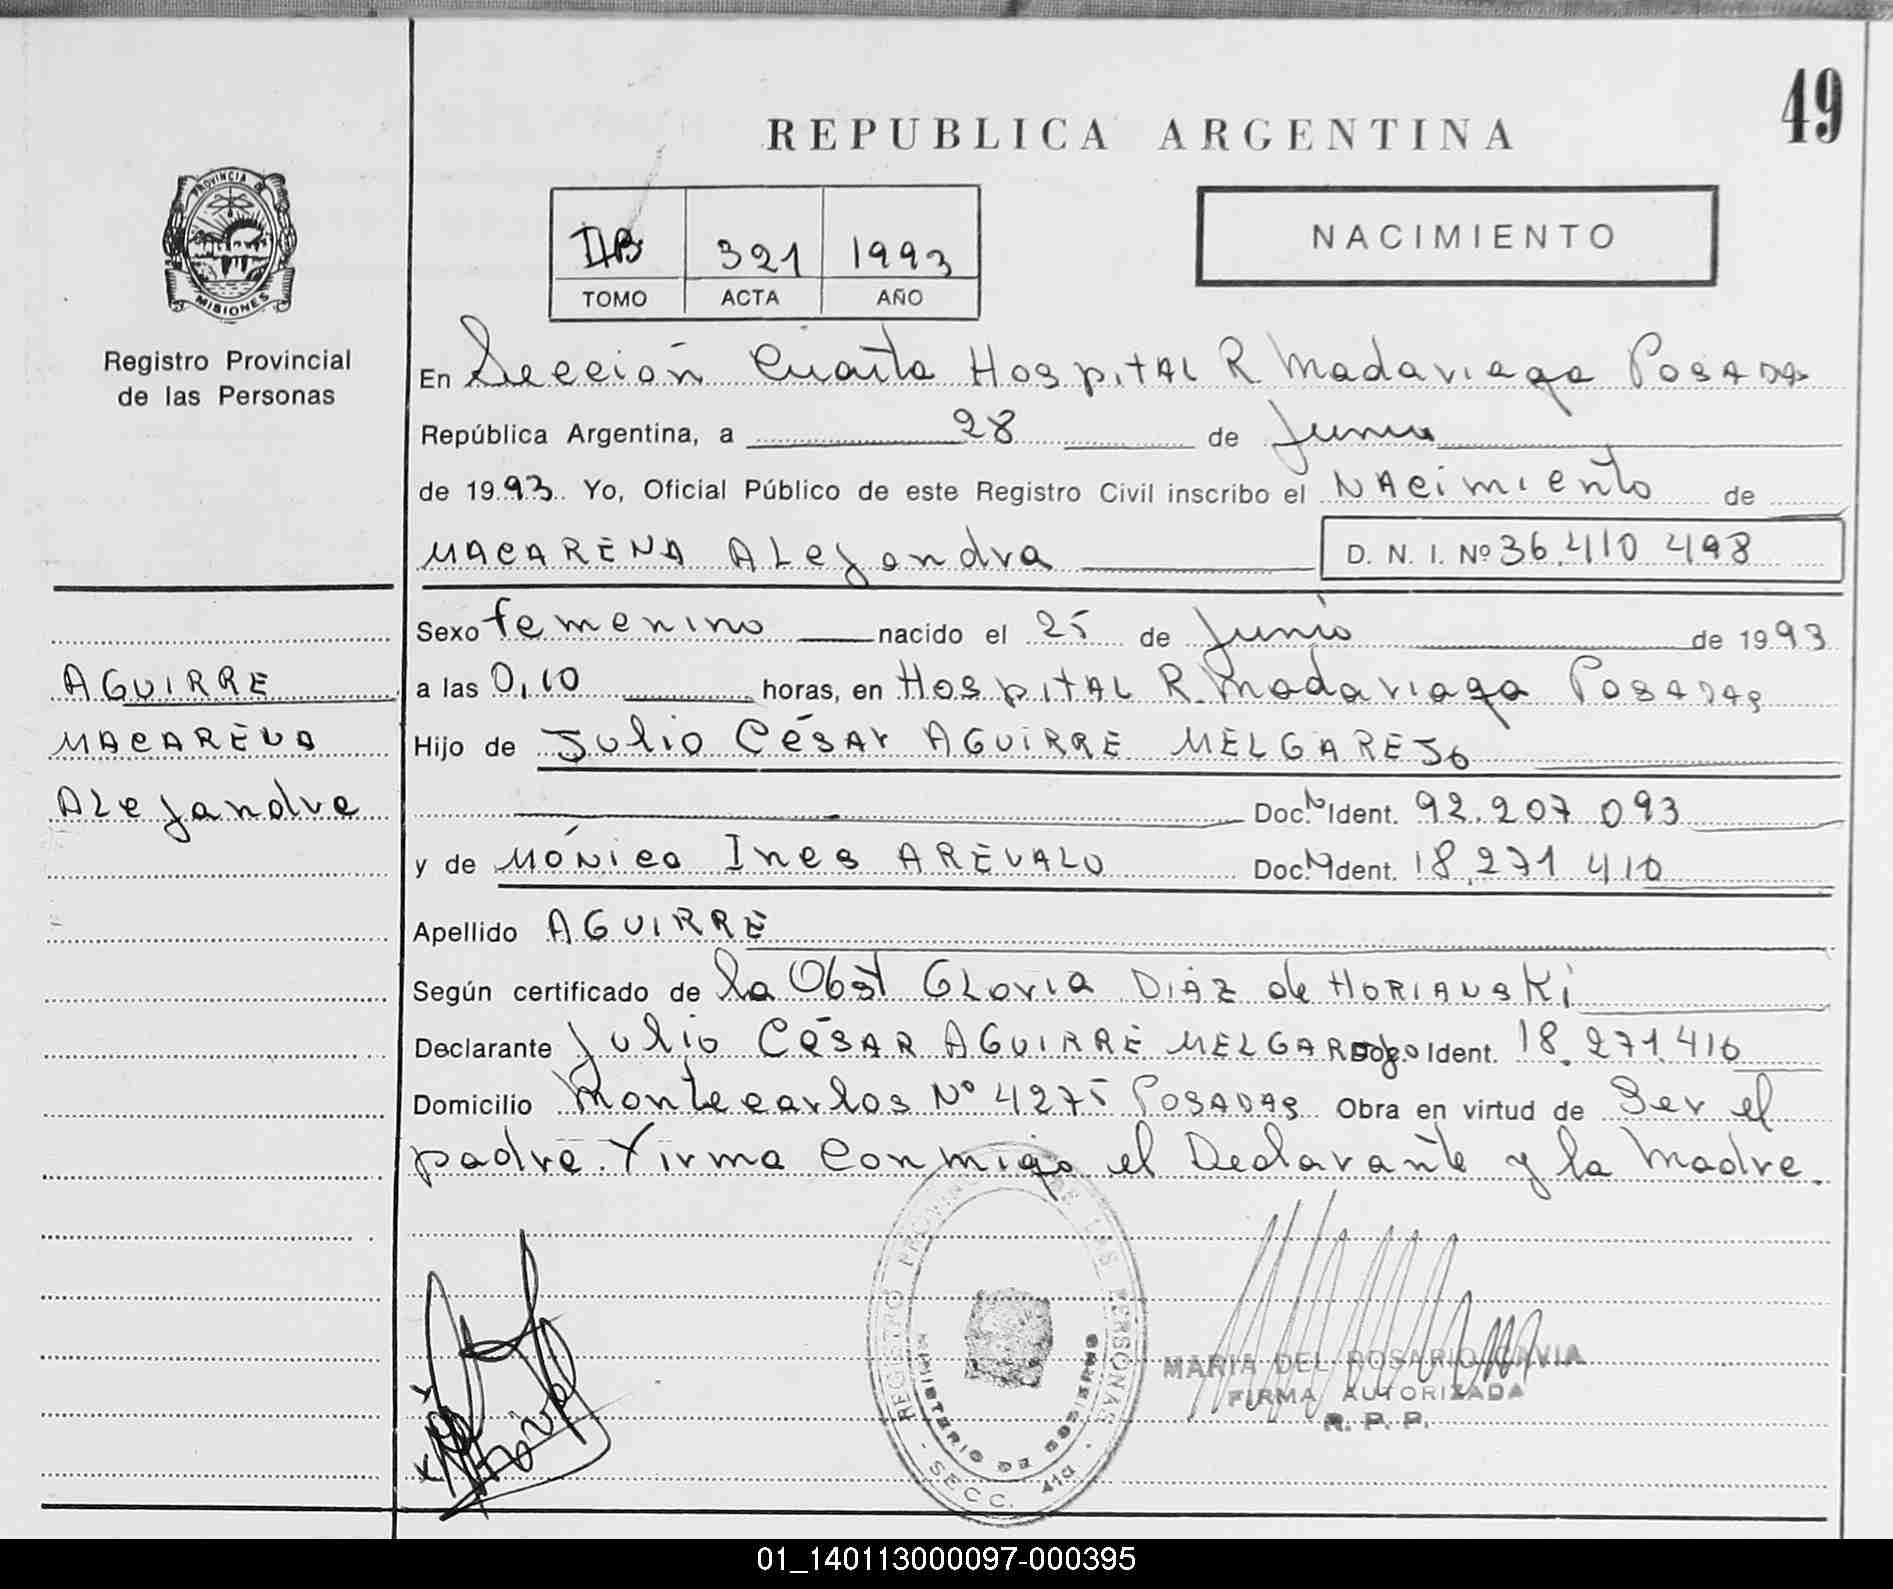 49
REPUBLICA ARGENTINA
PROVINCIA DE
MISIONES
Registro Provincial
de las Personas
IIB 321 1993
TOMO ACTA AÑO
NACIMIENTO
En Sección Cuarta Hospital R Madariaga Posadas
República Argentina, a 28 de Junio
de 1993. Yo, Oficial Público de este Registro Civil inscribo el NAcimiento de
MACARENA ALejandra D. N. I. Nº 36.410 498
Sexo femenino nacido el 25 de Junio de 1993
AGUIRRE
MACARENA
ALejandra
a las 0,10 horas, en HospitAL R. Madariaga Posadas
Hijo de Julio César AGUIRRE MELGAREJO
Doc. N Ident. 92.207 093
y de Mónica Ines AREVALO Doc. N Ident. 18.271 410
Apellido AGUIRRE
Según certificado de la Obst GLoria Diaz de HORIANSKi
Declarante Julio CésAR AGUIRRE MELGAREJO Doc. Ident. 18.271.410
Domicilio Montecarlos Nº 4275 Posadas Obra en virtud de Ser el
padre. Firma Conmigo el Declarante y la Madre.
REGISTRO PROVINCIAL DE LAS PERSONAS
MINISTERIO DE GOBIERNO
- SECC. 4ta -
MARIA DEL ROSARIO GAVIA
FIRMA AUTORIZADA
R. P. P.
01_140113000097-000395